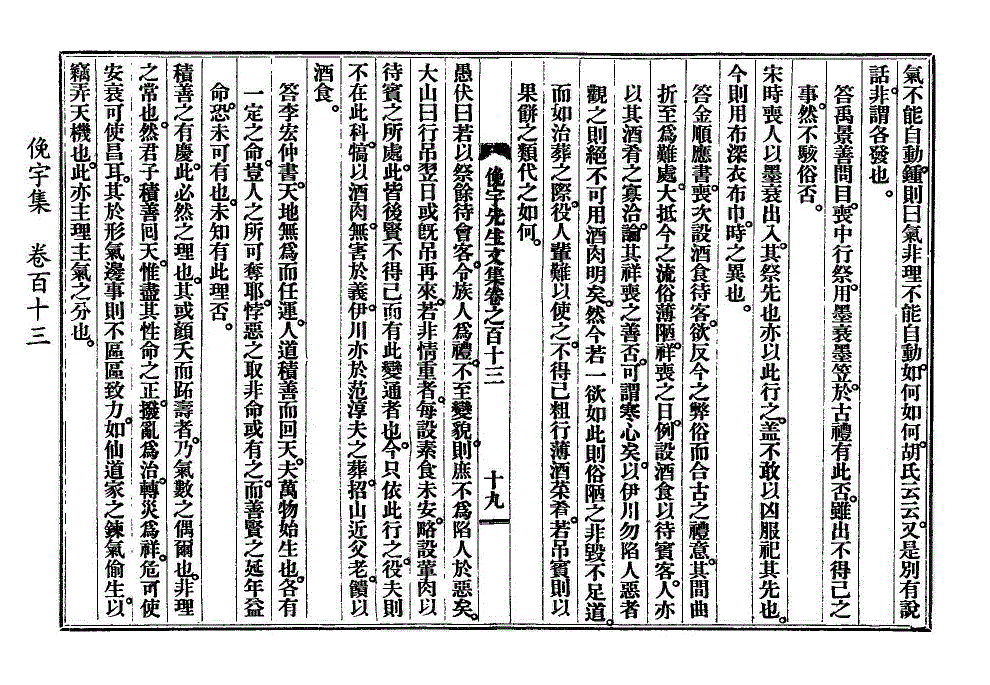 氣不能自動。鍾則曰氣非理不能自動。如何如何。胡氏云云。又是別有說
話。非謂各發也。
答禹景善問目。喪中行祭。用墨衰墨笠。於古禮有此否。雖出不得已之
事。然不駭俗否。
宋時喪人以墨衰出入。其祭先也。亦以此行之。盖不敢以凶服祀其先也。
今則用布深衣布巾。時之異也。
答金順應書。喪次設酒食待客。欲反今之弊俗而合古之禮意。其間曲
折至爲難處。大抵今之流俗薄陋。祥喪之日。例設酒食以待賓客。人亦
以其酒肴之寡治。論其祥喪之善否。可謂寒心矣。以伊川勿陷人惡者
觀之則絕不可用酒肉明矣。然今若一欲如此則俗陋之非毀不足道。
而如治葬之際。役人輩難以使之。不得已粗行薄酒菜肴。若吊賓則以
果餠之類代之如何。
俛宇先生文集卷之百十三　十九
愚伏曰若以祭餘待會客。令族人爲禮。不至變貌。則庶不爲陷人於惡矣。
大山曰行吊翌日或旣吊再來。若非情重者。每設素食未安。略設葷肉以
待賓之所處。此皆後賢不得已而有此變通者也。今只依此行之。役夫則
不在此科。犒以酒肉。無害於義。伊川亦於范淳夫之葬。招山近父老。饋以
酒食。
答李宏仲書。天地無爲而任運。人道積善而回天。夫萬物始生也。各有
一定之命。豈人之所可奪耶。悖惡之取非命或有之。而善賢之延年益
命。恐未可有也。未知有此理否。
積善之有慶。此必然之理也。其或顔夭而跖壽者。乃氣數之偶爾也。非理
之常也。然君子積善囘天。惟盡其性命之正。撥亂爲治。轉災爲祥。危可使
安衰可使昌耳。其於形氣邊事則不區區致力。如仙道家之鍊氣偷生。以
竊弄天機也。此亦主理主氣之分也。
俛宇集　卷百十三